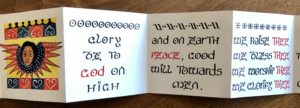 Glory
be to
God on
high
and on earth
peace, good
will towards
men.
We praise thee
we bless thee
we worship thee
we glorify thee